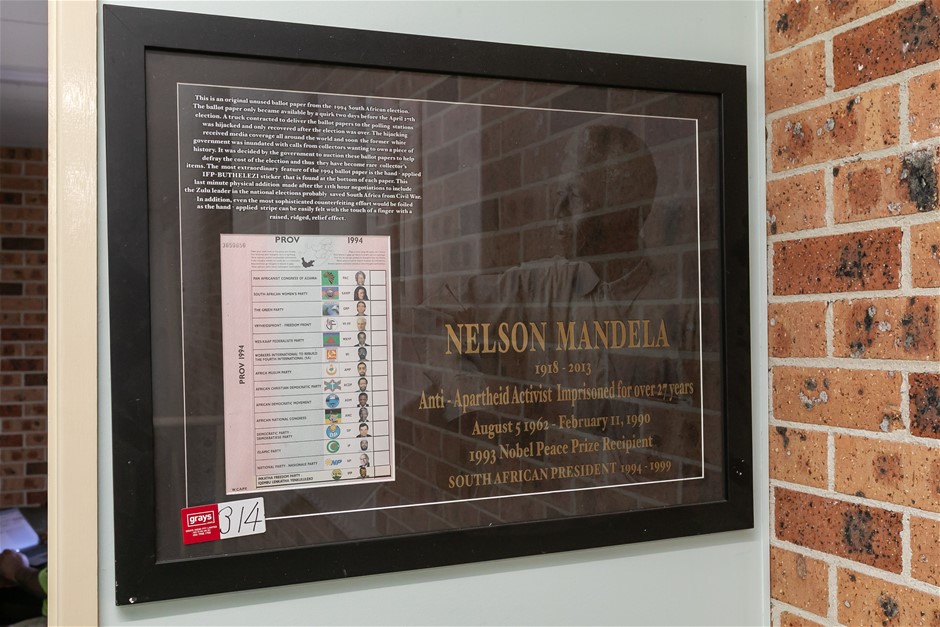 This is an original unused ballot paper from the 1994 South African election.
The ballot paper only became available by a quirk two days before the April 27th
election. A truck contracted to deliver the ballot papers to the polling stations
was hijacked and only recovered after the election was over. The hijacking
received media coverage all around the world and soon the former white
government was inundated with calls from collectors wanting to own a piece of
history. It was decided by the government to auction these ballot papers to help
defray the cost of the election and thus they have become rare collector's
items. The most extraordinary feature of the 1994 ballot paper is the hand - applied
IFP-BUTHELEZI sticker that is found at the bottom of each paper. This
last minute physical addition made after the 11th hour negotiations to include
the Zulu leader in the national elections probably saved South Africa from Civil War.
In addition, even the most sophisticated counterfeiting effort would be foiled
as the hand - applied stripe can be easily felt with the touch of a finger with a
raised, ridged, relief effect.
PROV 1994
PROV 1994
PAN AFRICANIST CONGRESS OF AZANIA PAC
SOUTH AFRICAN WOMEN'S PARTY SAWP
THE GREEN PARTY GRP
VRYHEIDSFRONT - FREEDOM FRONT VF-FF
WES-KAAP FEDERALISTE PARTY WKFP
WORKERS INTERNATIONAL TO REBUILD
THE FOURTH INTERNATIONAL (SA) WI
AFRICA MUSLIM PARTY AMP
AFRICAN CHRISTIAN DEMOCRATIC PARTY ACDP
AFRICAN DEMOCRATIC MOVEMENT ADM
AFRICAN NATIONAL CONGRESS ANC
DEMOCRATIC PARTY -
DEMOKRATIESE PARTY DP
ISLAMIC PARTY IP
NATIONAL PARTY - NASIONALE PARTY NP
INKATHA FREEDOM PARTY
IQEMBU LENKATHA YENKULULEKO IFP
W-CAPE
NELSON MANDELA
1918 - 2013
Anti - Apartheid Activist Imprisoned for over 27 years
August 5 1962 - February 11, 1990
1993 Nobel Peace Prize Recipient
SOUTH AFRICAN PRESIDENT 1994 - 1999
grays
314